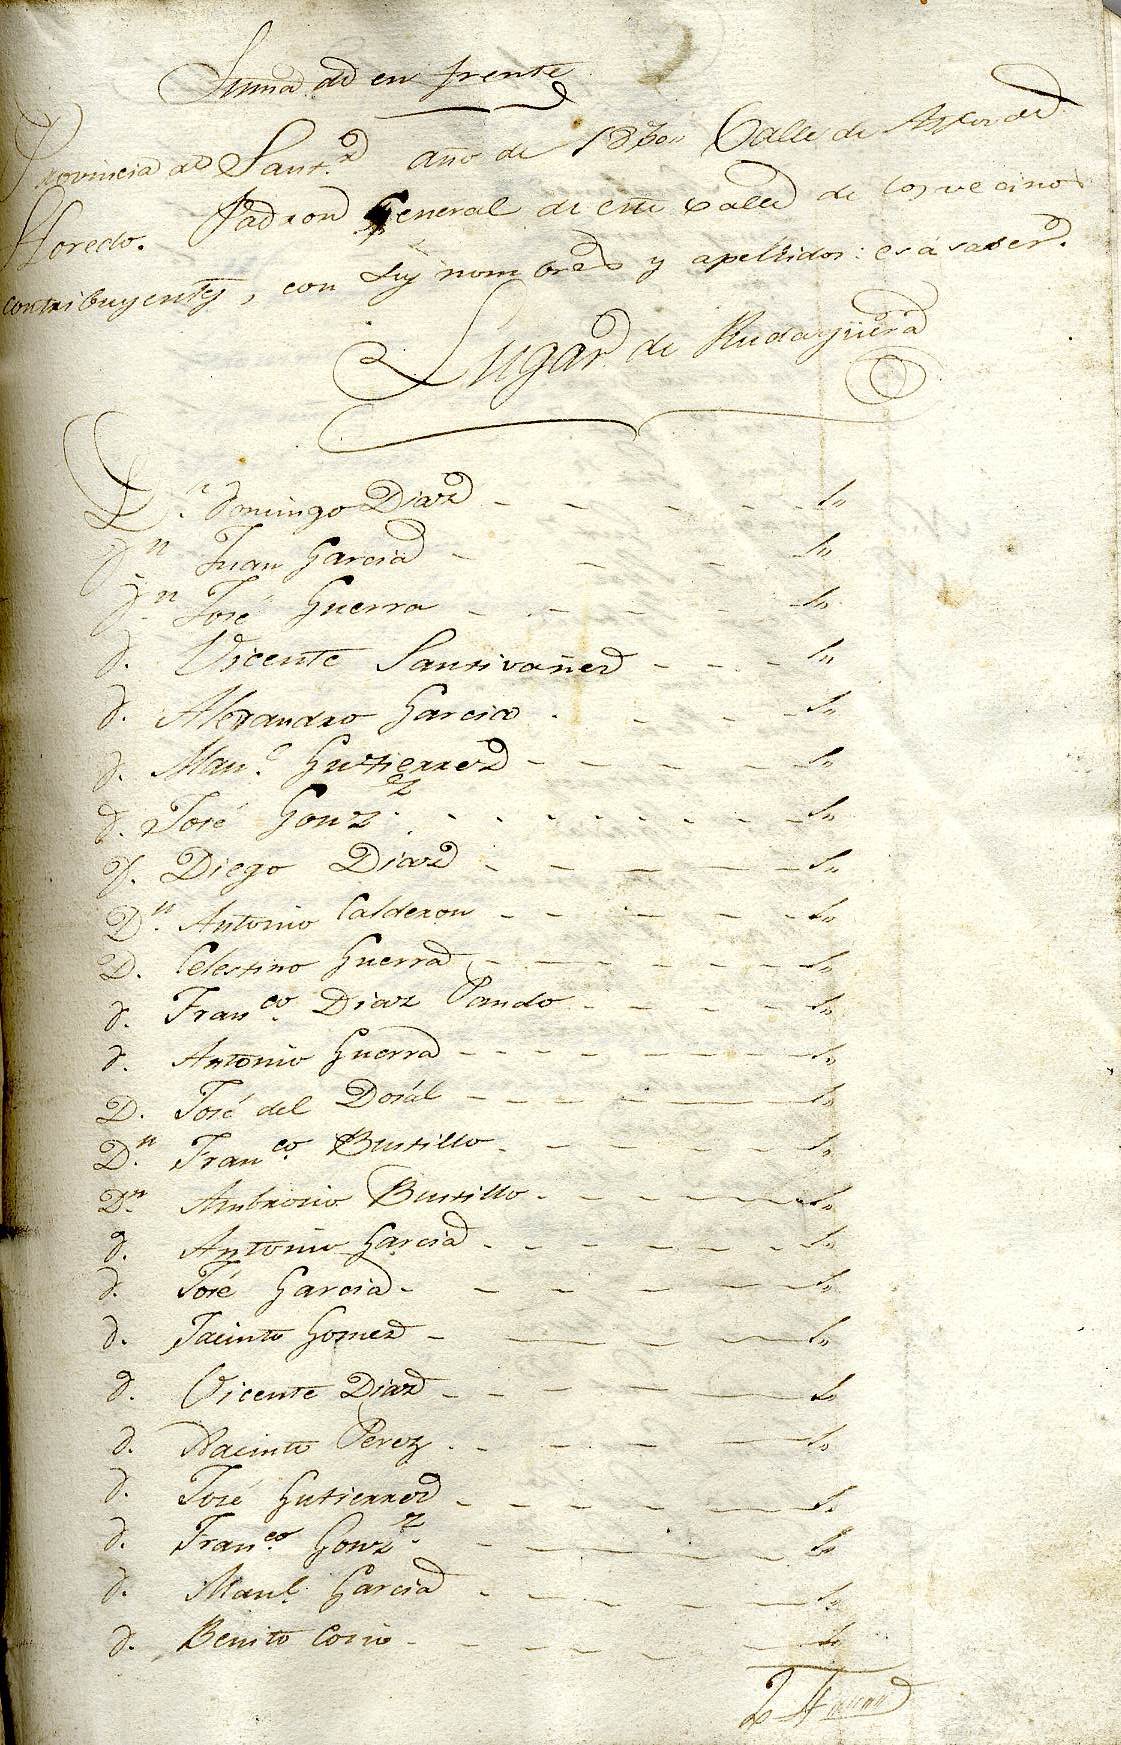 Suma de en frente
Provincia de Sant.r año de 18 Valle de Alfoz de
Lloredo. Padron General de este valle de los vecinos
contribuyentes, con sus nombres y apellidos: es á saver.
Lugar de Rudagüera
D.n Domingo Diaz - - - - - 1,,
D.n Juan Garcia - - - - 1,,
D.n José Guerra - - - - - 1,,
d. Vicente Santivañez - - - 1,,
d. Alexandro Garcia - - - - 1,,
d. Man.l Gutierrez - - - - - 1,,
d. José Gonz.ez - - - - - - - 1,,
d. Diego Diaz - - - - - 1,,
D.n Antonio Calderon - - - - - 1,,
D. Celestino Guerra - - - - - 1,,
d. Fran.co Diaz Pando - - - - 1,,
d. Antonio Guerra - - - - - - 1,,
D. José del Dosál - - - - 1,,
D.n Fran.co Bustillo - - - - - 1,,
D.n Ambrosio Bustillo - - - - - 1,,
d. Antonio Garcia - - - - - - 1,,
d. José Garcia - - - - - 1,,
d. Jacinto Gomez - - - - 1,,
d. Vicente Diaz - - - - - 1,,
d. Jacinto Perez - - - - - 1,,
d. José Gutierrez - - - - - 1,,
d. Fran.co Gonz.z - - - - - 1,,
d. Manl. Garcia - - - - - 1,,
d. Benito Cosio - - - - - 1,,